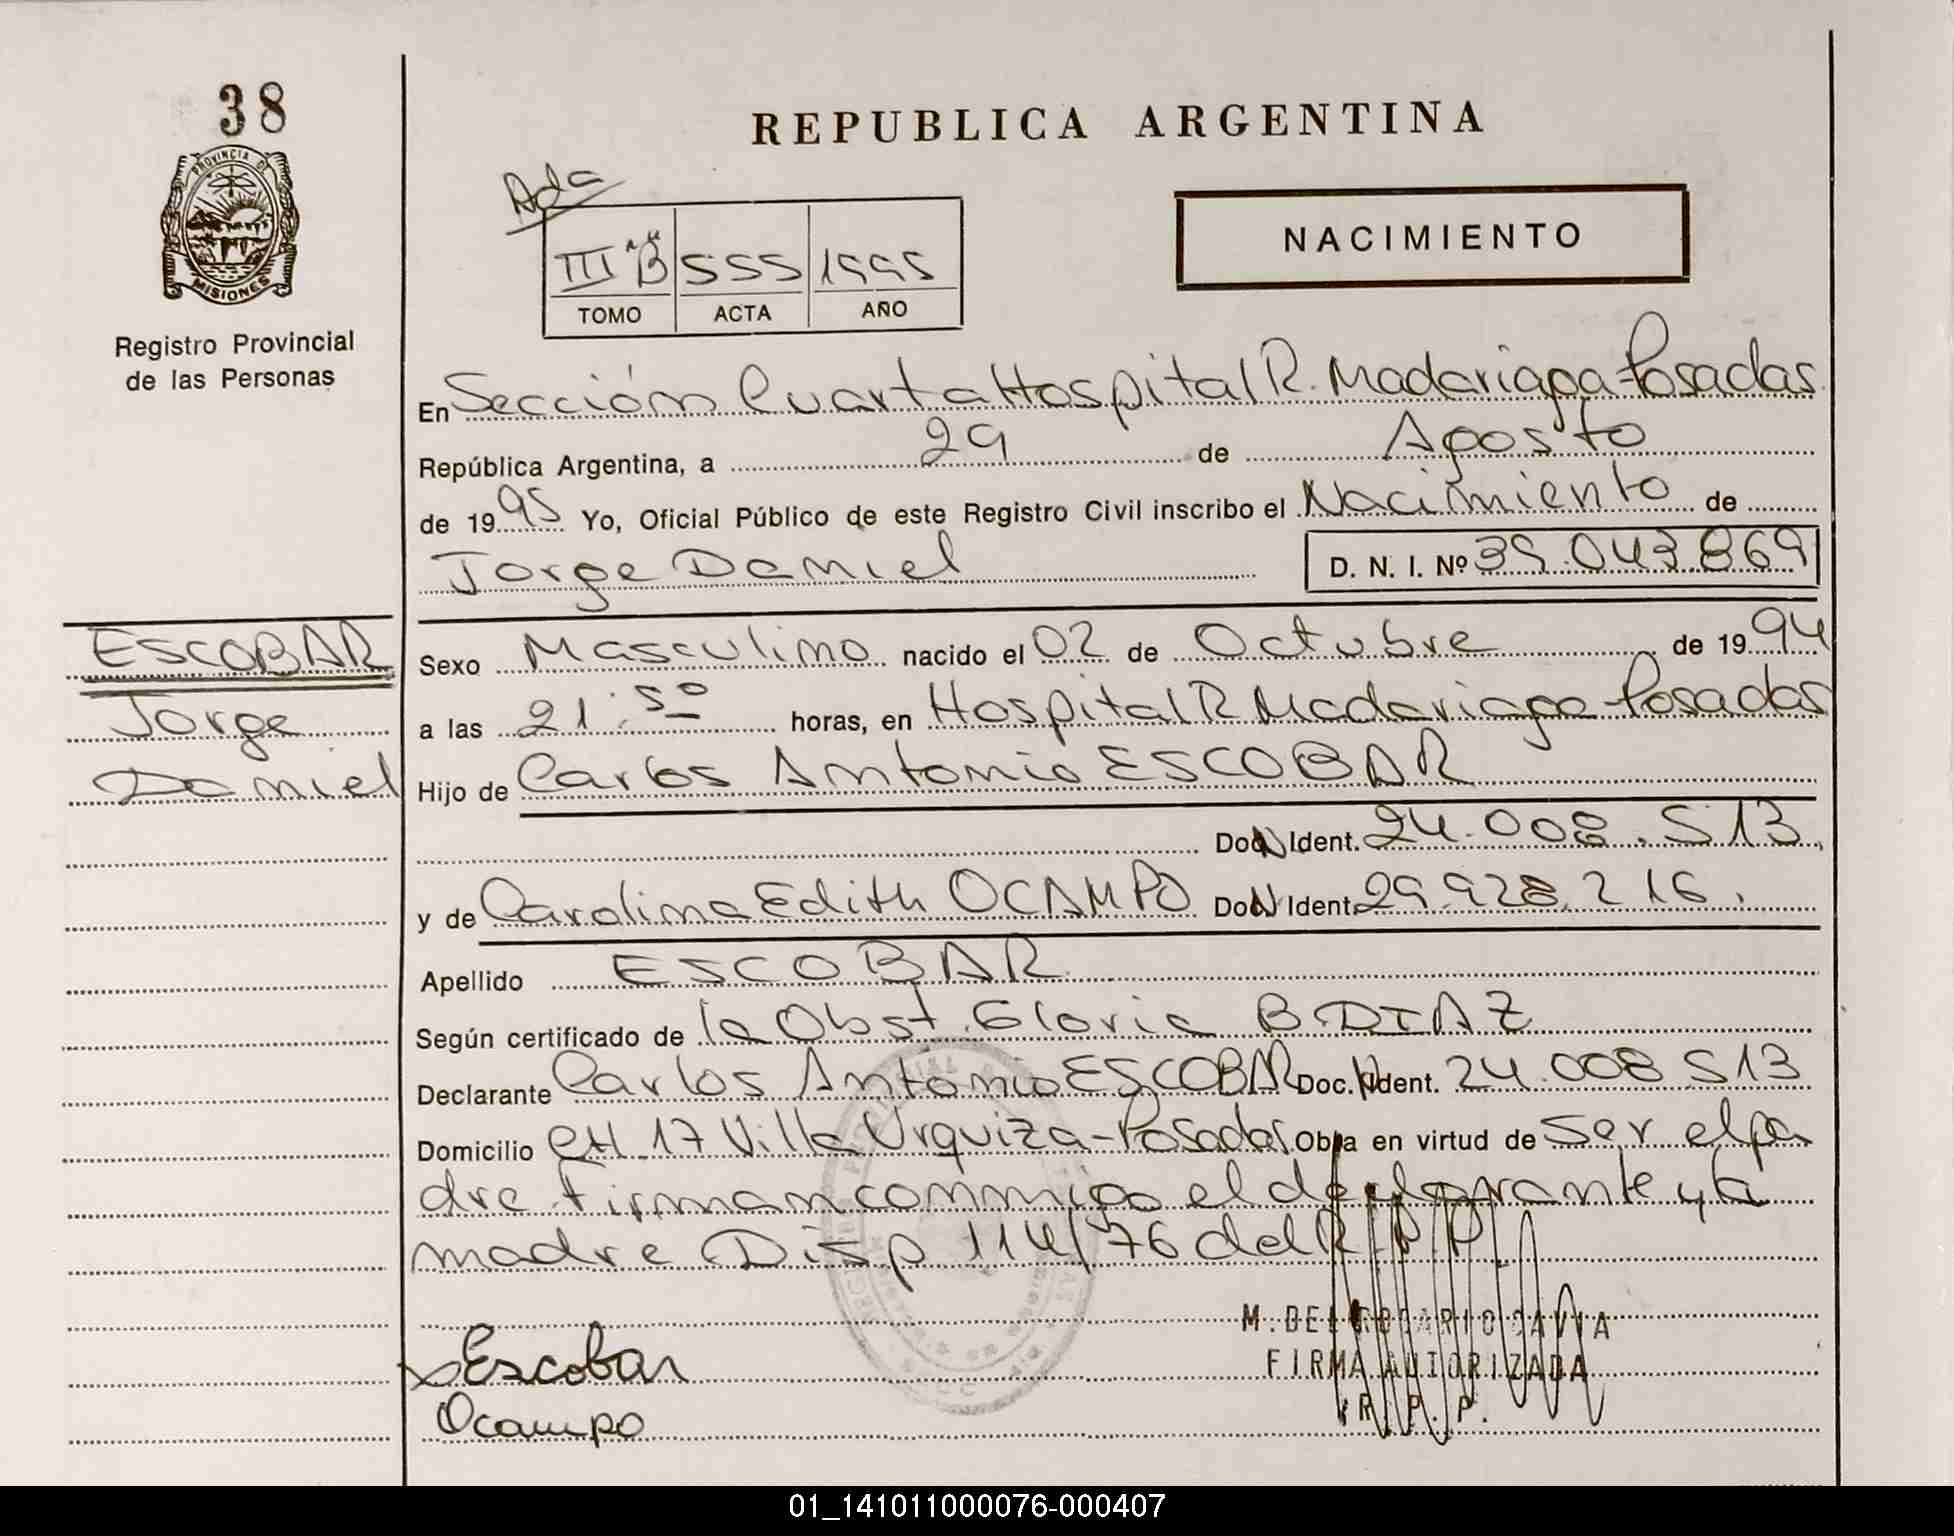 38
PROVINCIA DE
MISIONES
Registro Provincial
de las Personas
REPUBLICA ARGENTINA
NACIMIENTO
III "B" 555 1995
TOMO ACTA AÑO
En Sección Cuarta Hospital R. Madariaga-Posadas
República Argentina, a 29 de Agosto
de 1995 Yo, Oficial Público de este Registro Civil inscribo el Nacimiento de
Jorge Daniel D. N. I. Nº 39.043.869
ESCOBAR
Jorge
Daniel
Sexo Masculino nacido el 02 de Octubre de 1994
a las 21:50 horas, en Hospital R Madariaga-Posadas
Hijo de Carlos Antonio ESCOBAR
Ident. 24.008.513,
y de Carolina Edith OCAMPO Ident. 29.928.216.
Apellido ESCOBAR
Según certificado de la Obst. Gloria B. DIAZ
Declarante Carlos Antonio ESCOBAR Doc. Ident. 24.008.513
Domicilio CH 17 Villa Urquiza-Posadas. Obra en virtud de ser el pa
dre. Firman conmigo el declarante y la
madre Disp 114/76 del R.P.P.
M. DEL ROSARIO
FIRMA AUTORIZADA
R. P. P.
Escobar
Ocampo
01_141011000076-000407